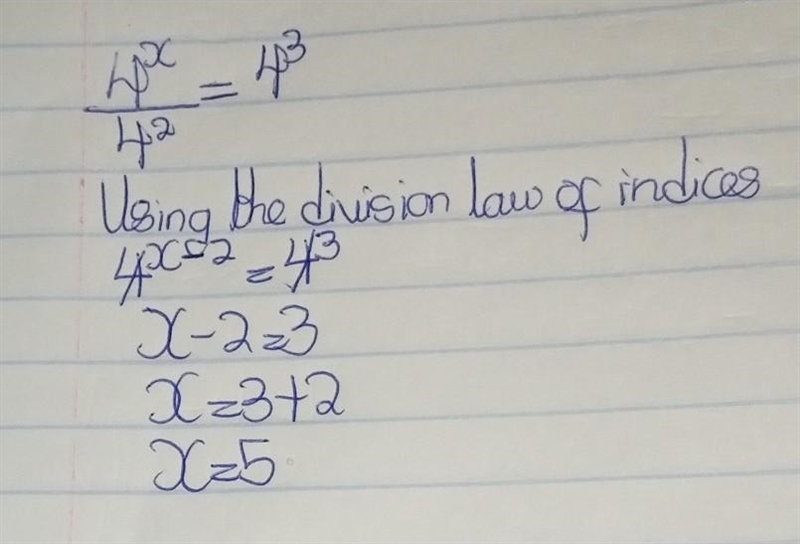 4^x/4^2 = 4^3
Using the division law of indices
4^x-2 = 4^3
x-2=3
x=3+2
x=5